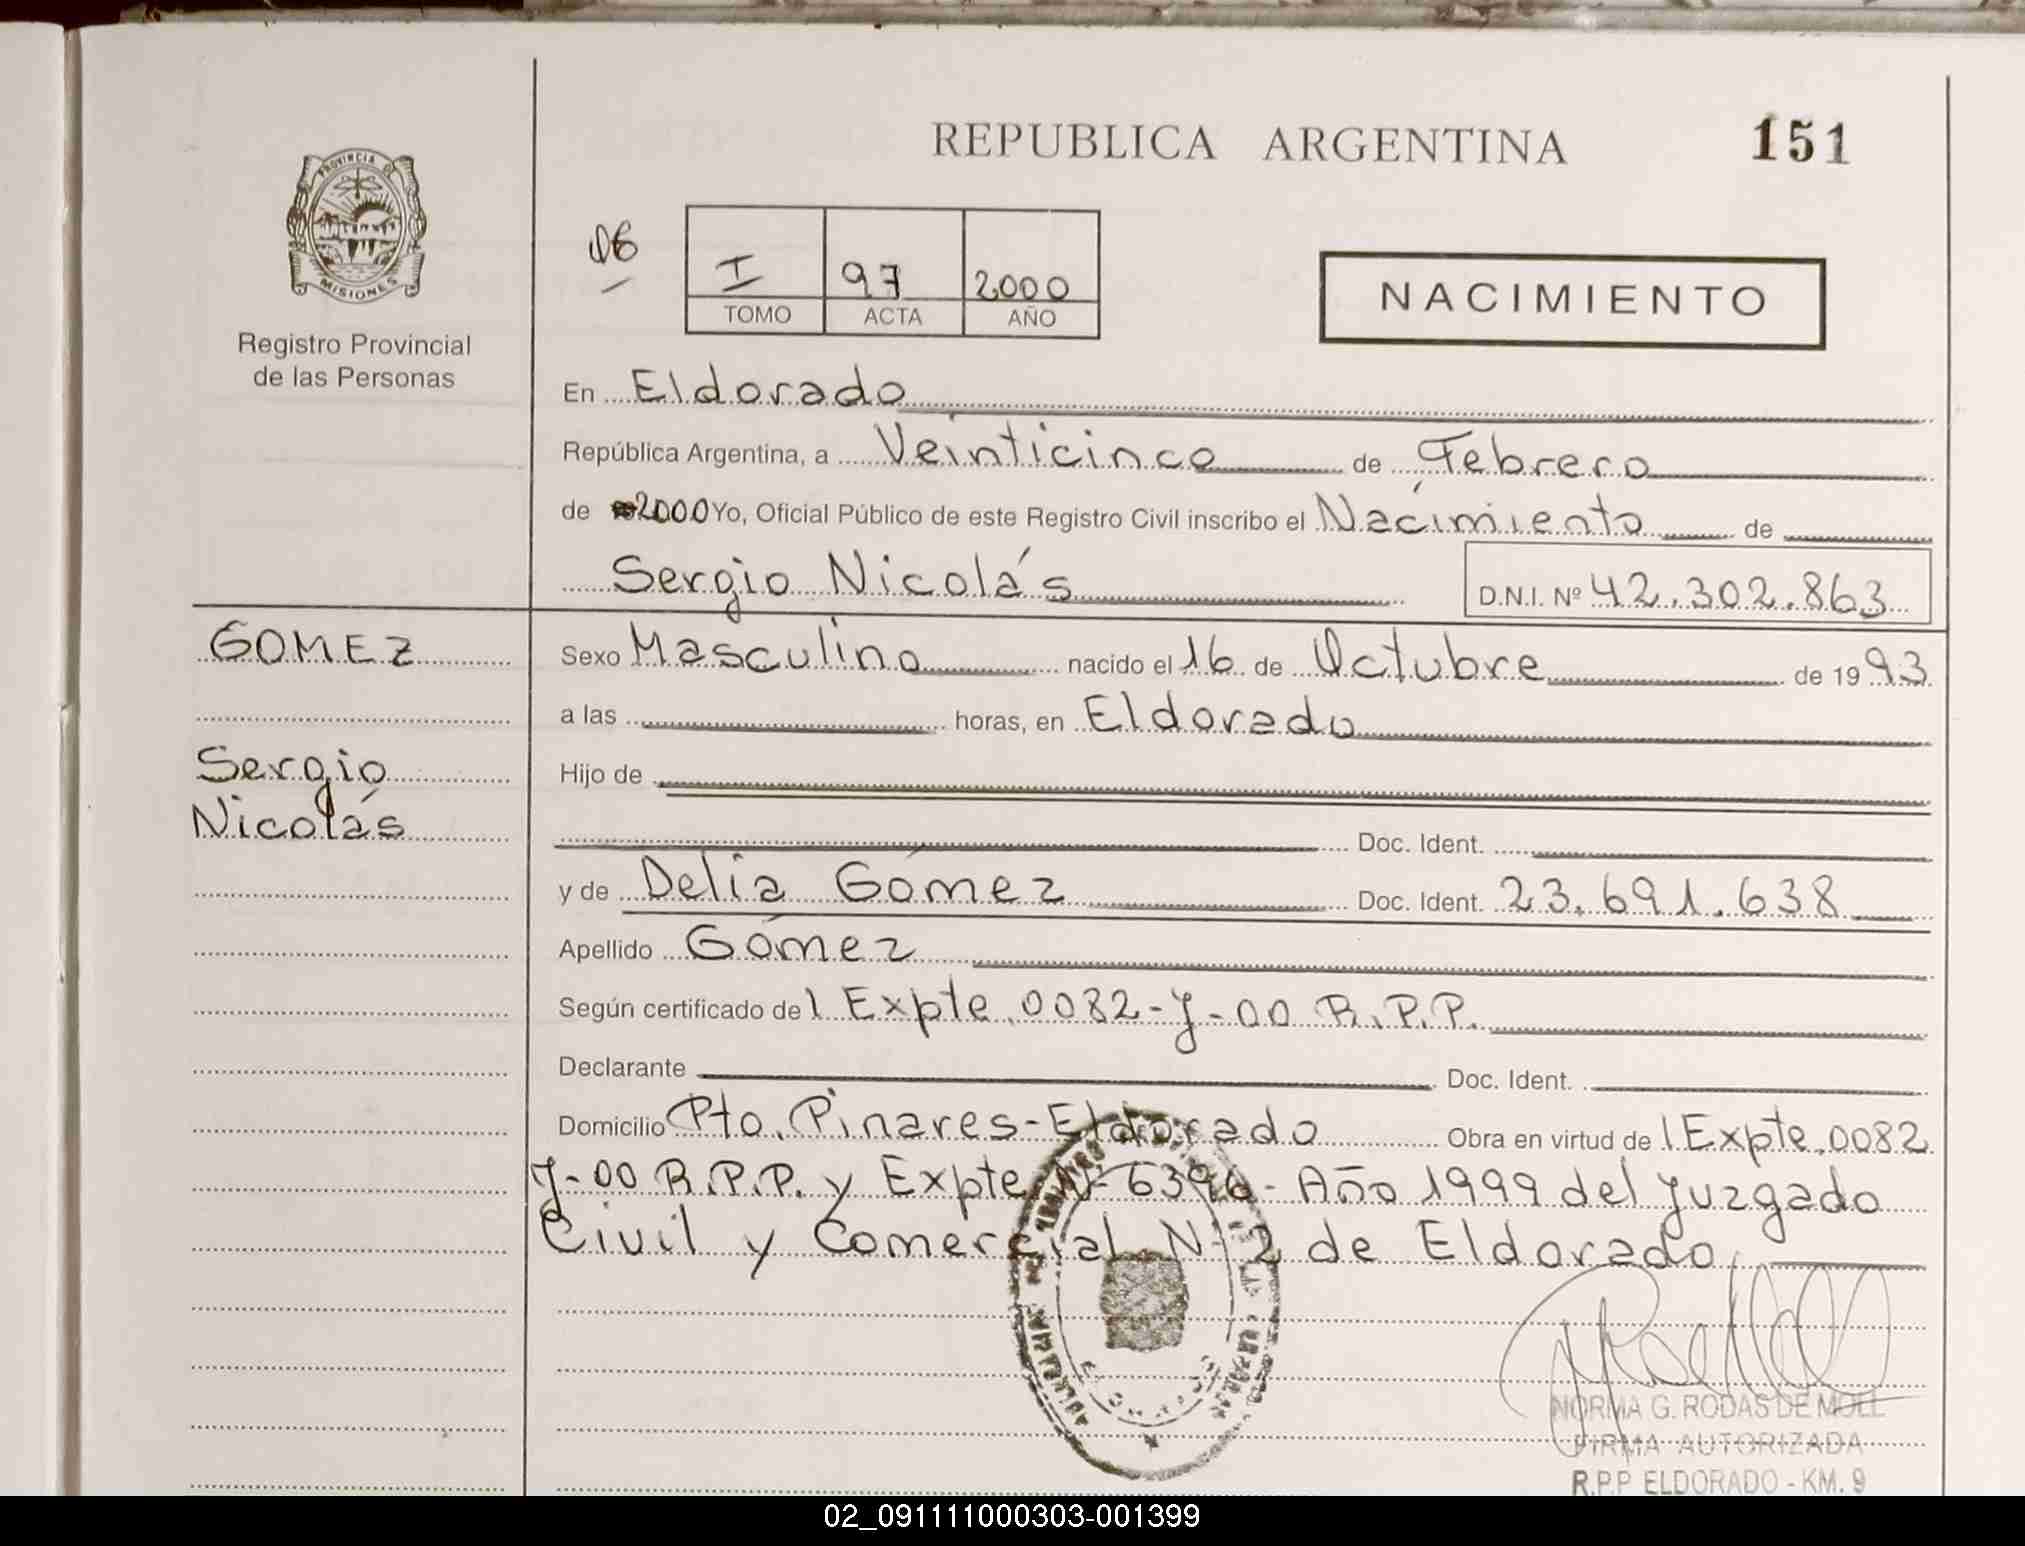 REPUBLICA ARGENTINA
151
PROVINCIA DE
MISIONES
Registro Provincial
de las Personas
06
I 97 2000
TOMO ACTA AÑO
NACIMIENTO
En Eldorado
República Argentina, a Veinticinco de Febrero
de 2000 Yo, Oficial Público de este Registro Civil inscribo el Nacimiento de
Sergio Nicolás D.N.I. Nº 42.302.863
GOMEZ
Sergio
Nicolás
Sexo Masculino nacido el 16 de Octubre de 1993
a las horas, en Eldorado
Hijo de
Doc. Ident.
y de Delia Gómez Doc. Ident. 23.691.638
Apellido Gómez
Según certificado del Expte. 0082-J-00 R.P.P.
Declarante Doc. Ident.
Domicilio Pto. Pinares-Eldorado Obra en virtud del Expte. 0082
J-00 R.P.P. y Expte Nº 6396-Año 1999 del Juzgado
Civil y Comercial Nº 2 de Eldorado.
NORMA G. RODAS DE MOLL
FIRMA AUTORIZADA
R.P.P ELDORADO - KM. 9
02_091111000303-001399